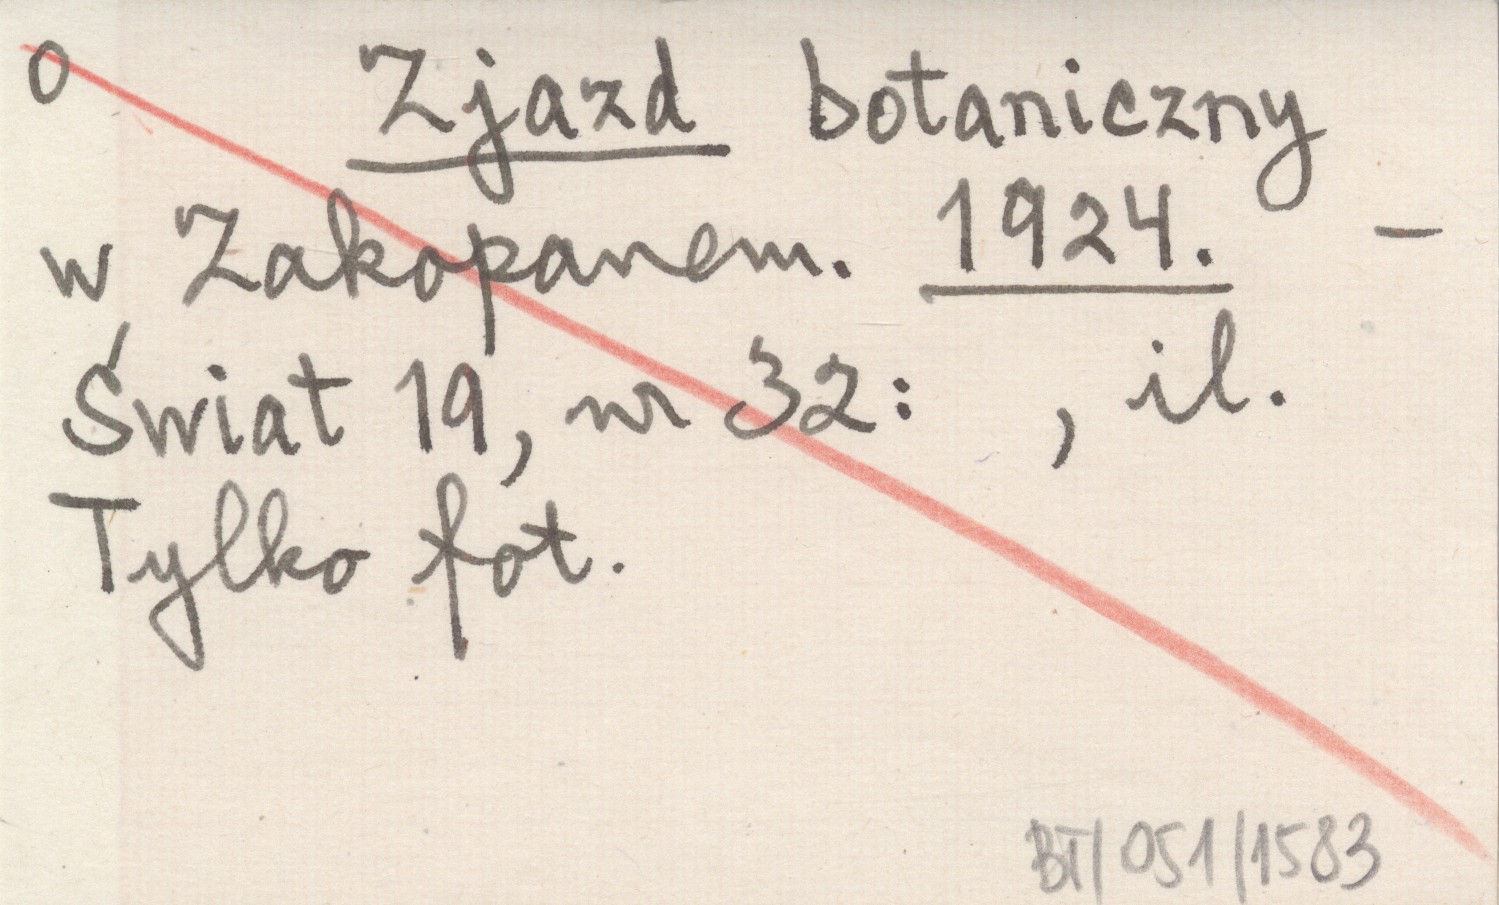 o Zjazd botaniczny
w Zakopanem. 1924. —
Świat 19, nr 32: , il.
Tylko fot.
BT/051/1583